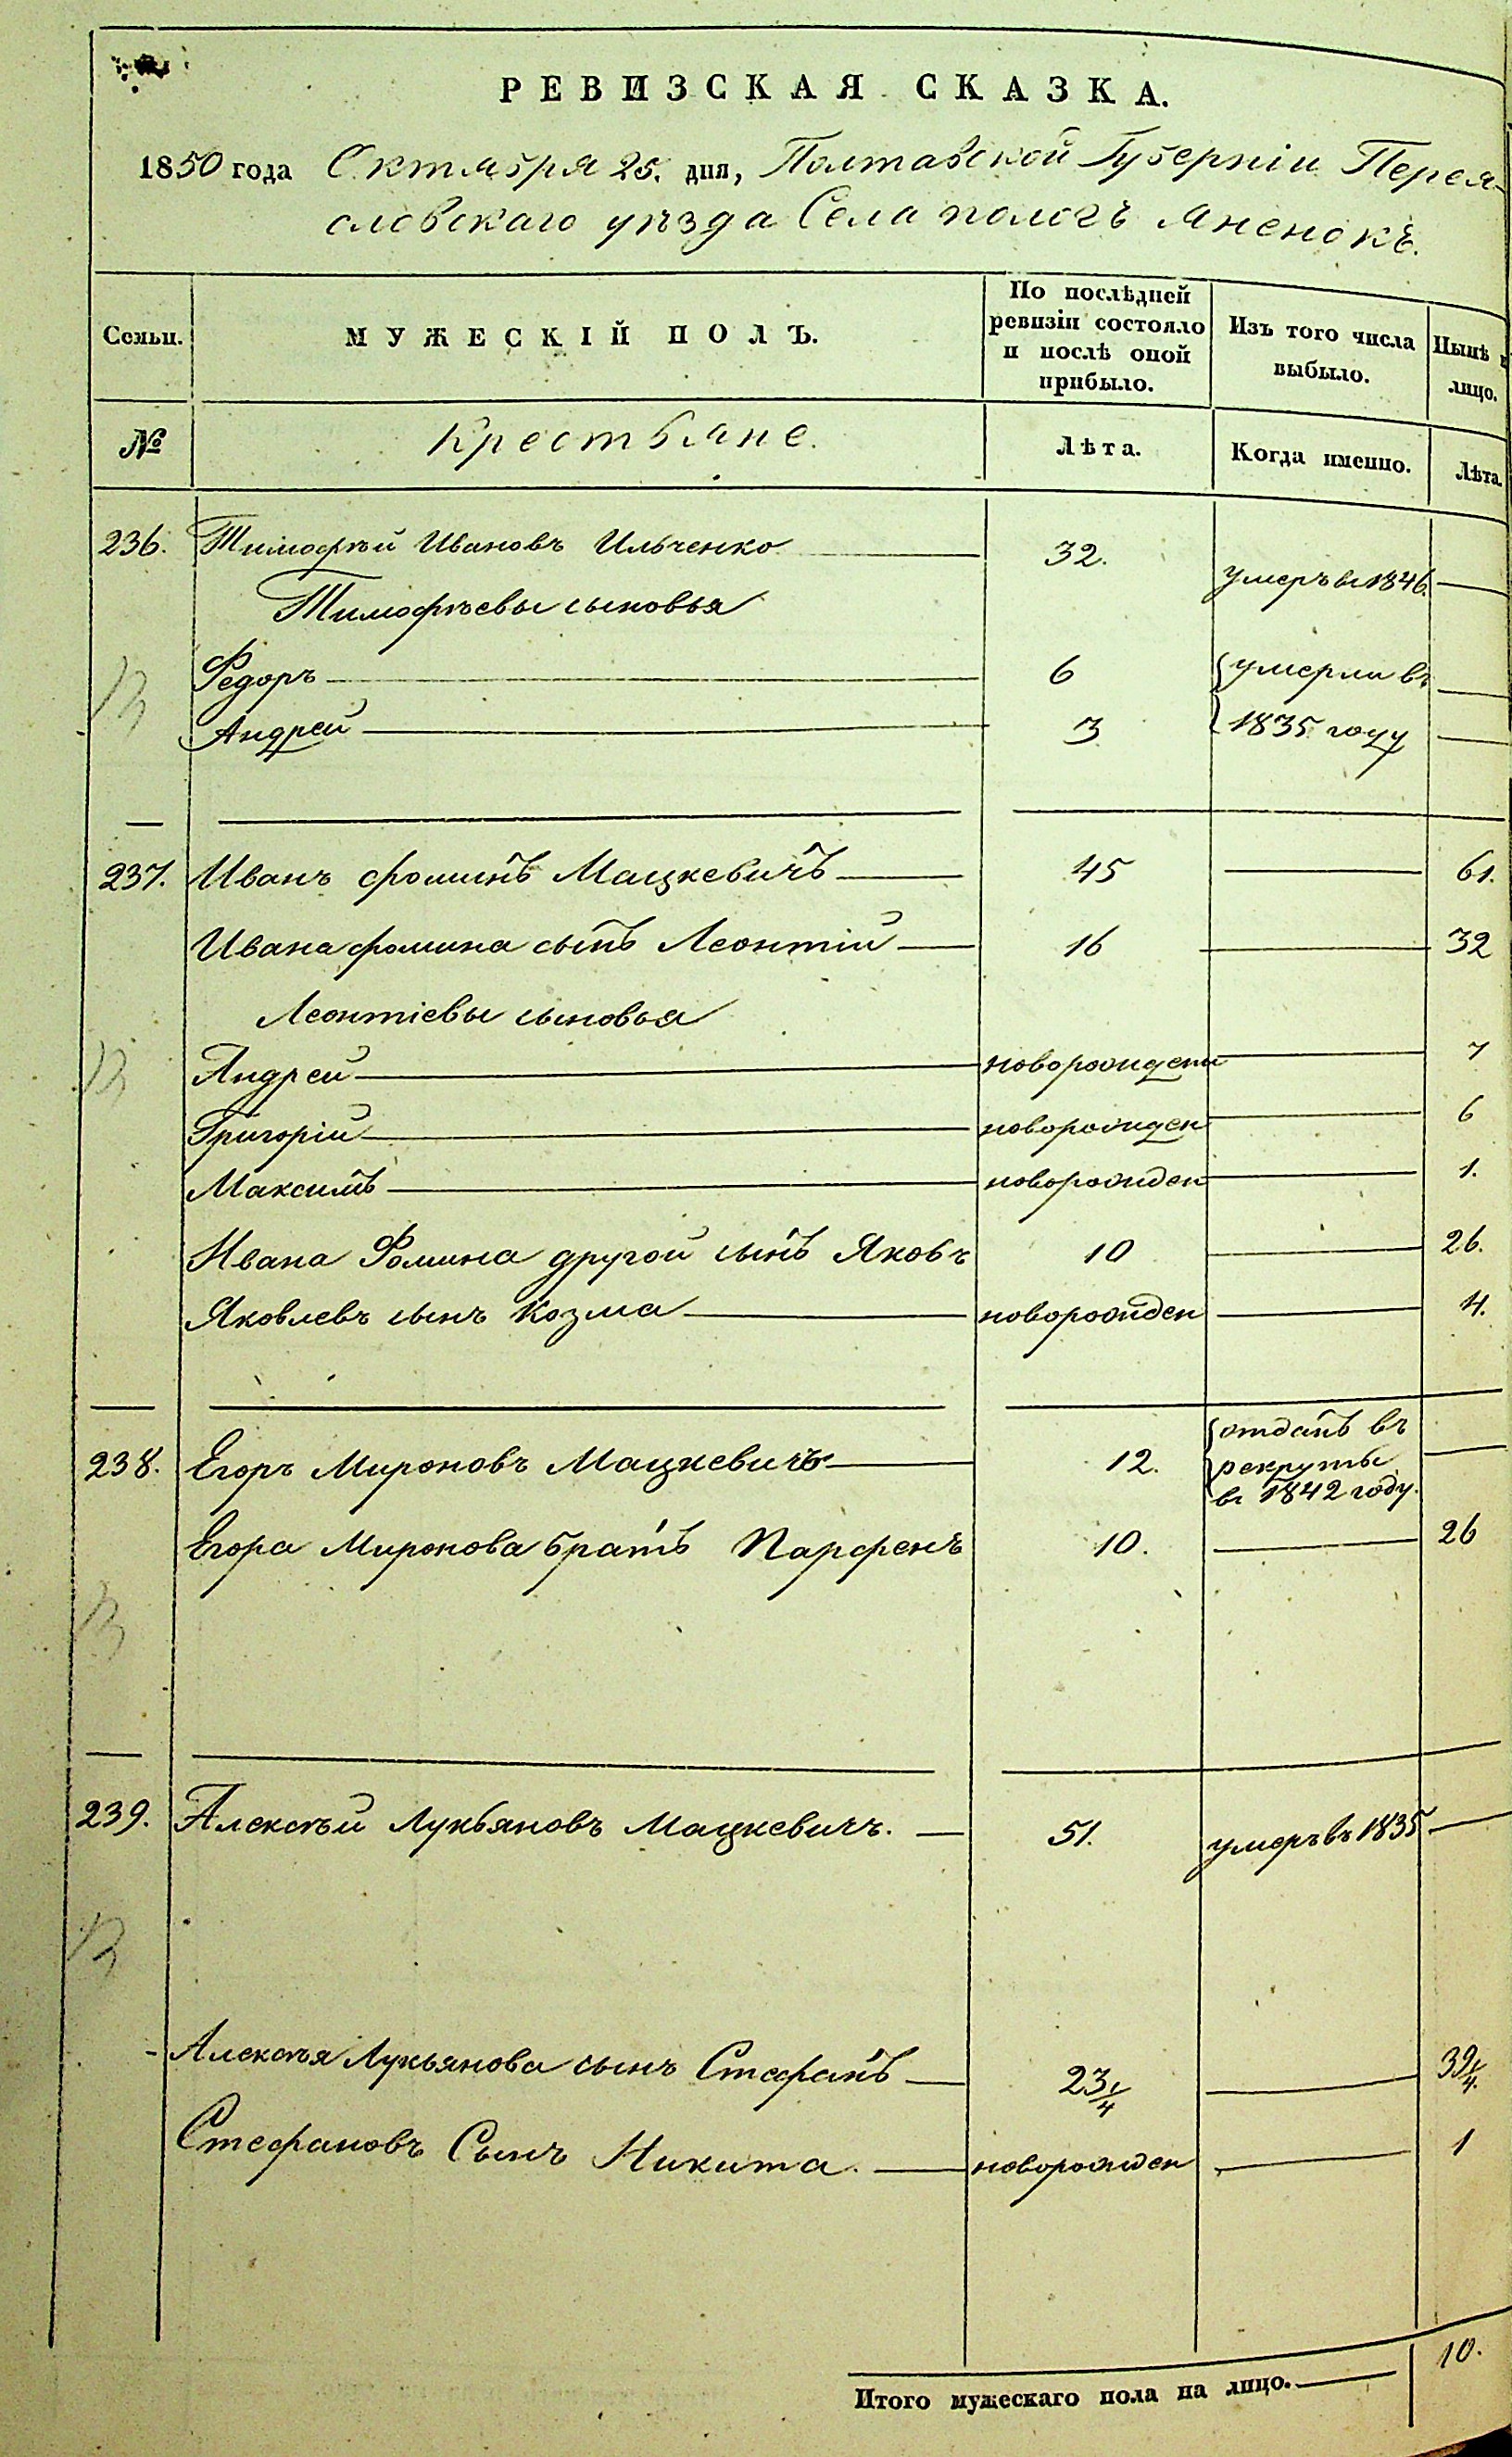 РЕВИЗСКАЯ СКАЗКА.
1850 года Октября 25. дня, Полтавской Губерніи Перея-
словскаго уѣзда Села пологъ Яненокъ.
Семьи. МУЖЕСКІЙ ПОЛЪ. По послѣдней ревизіи состояло и послѣ оной прибыло. Изъ того числа выбыло. Нынѣ н лицо.
№ Крестьяне. Лѣта. Когда именно. Лѣта.
236. Тимофѣй Ивановъ Ильченко 32. умеръ въ 1846.
Тимофѣевы сыновья
Федоръ 6 умерли въ
Андрей 3 1835 году
237. Иванъ фоминъ Мацкевичъ 45 61.
Ивана фомина сынъ Леонтій 16 32
Леонтіевы сыновья
Андрей новорожден 7
Григорій новорожден 6
Максимъ новорожден 1.
Ивана Фомина другой сынъ Яковъ 10 26.
Яковлевъ сынъ Козма новорожден 4.
238. Егоръ Мироновъ Мацкевичъ 12. отданъ въ
рекруты
въ 1842 году.
Егора Миронова братъ Парфенъ 10. 26
239. Алексѣй Лукьяновъ Мацкевичъ. 51. умеръ въ 1835
Алексѣя Лукьянова сынъ Стефанъ 23 1/4 39 1/4.
Стефановъ Сынъ Никита. новорожден 1
Итого мужескаго пола на лицо. 10.